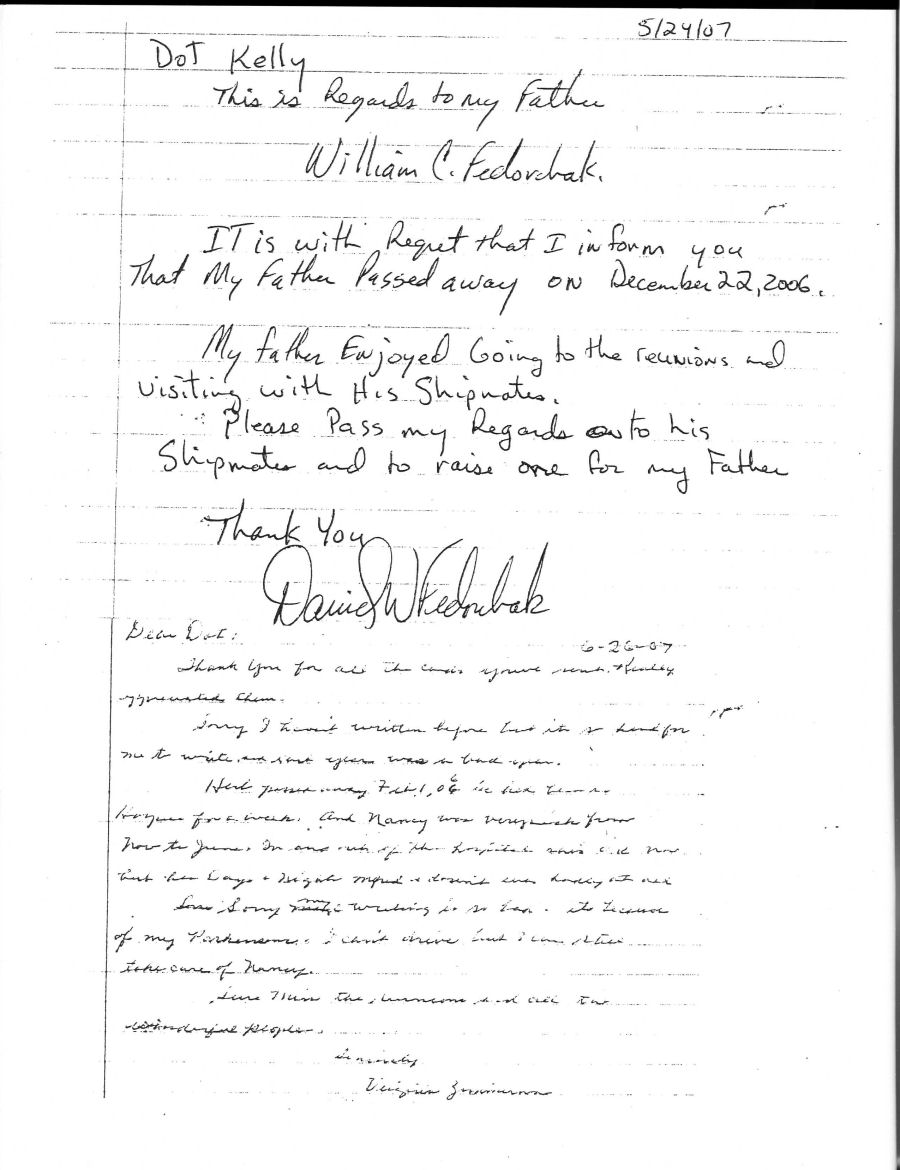 5/24/07
Dot Kelly
This is Regards to my Father
William C. Fedorchak.
IT is with Regret that I inform you
That My Father Passed away on December 22, 2006.
My father Enjoyed Going to the reunions and
visiting with His Shipmates.
Please Pass my Regards on to his
Shipmates and to raise one for my Father
Thank You
David W Fedorchak
Dear Dot:
6-26-07
Thank You for all the cards you've sent. Really
appreciated them.
Sorry I haven't written before but it's so hard for
me to write and last year was a bad year.
Herb passed away Feb 1, 06 he had been in
for a week. And Nancy was very sick from
Nov to June. In and out of the hospital. She's O.K. now
but has Days & Nights mixed & doesn't even hardly eat
Sorry my writing is so bad. its because
of my Parkinsons. I can't drive but I can still
take care of Nancy.
Sure Miss the reunions and all the
wonderful people.
Sincerely
Virginia Zimmerman